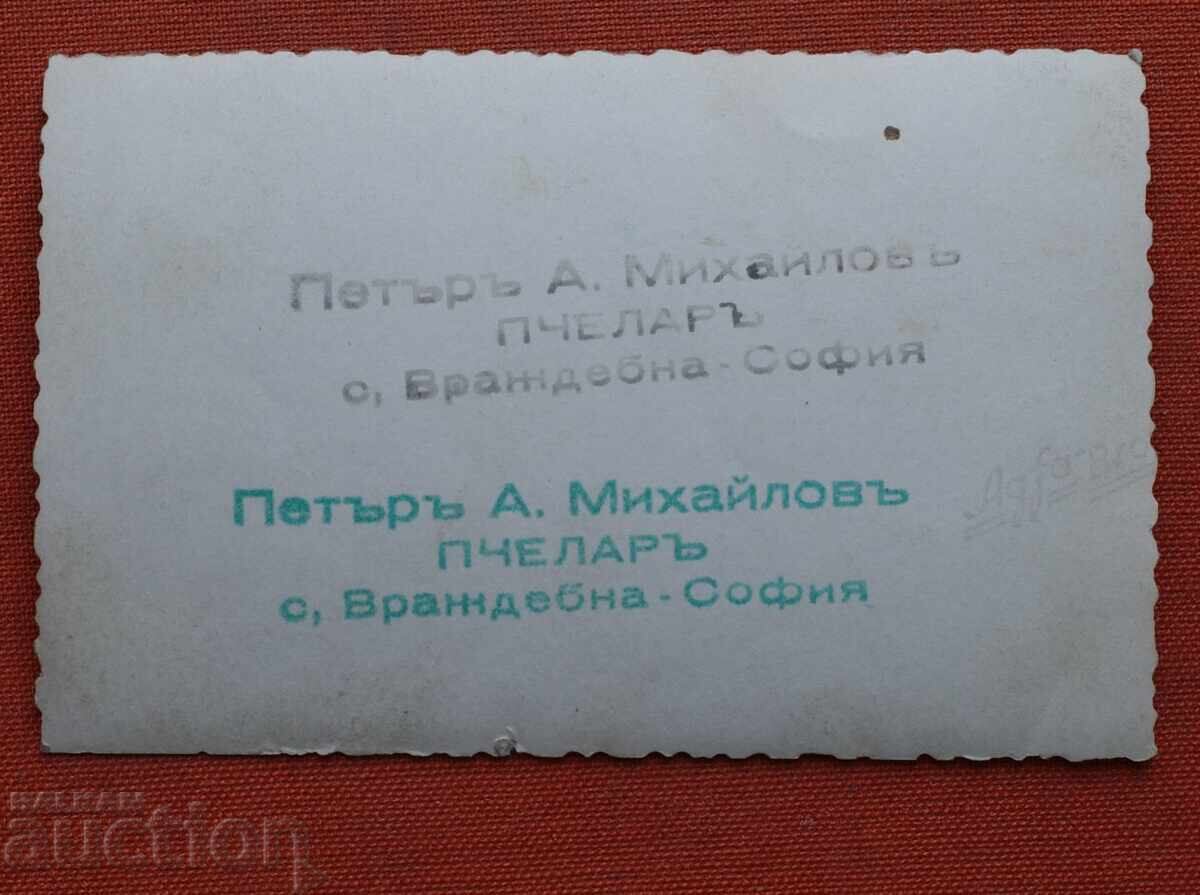 Петъръ А. Михайловъ
ПЧЕЛАРЪ
с, Враждебна - София
Петъръ А. Михайловъ
ПЧЕЛАРЪ
с, Враждебна - София
BALKAN
auction